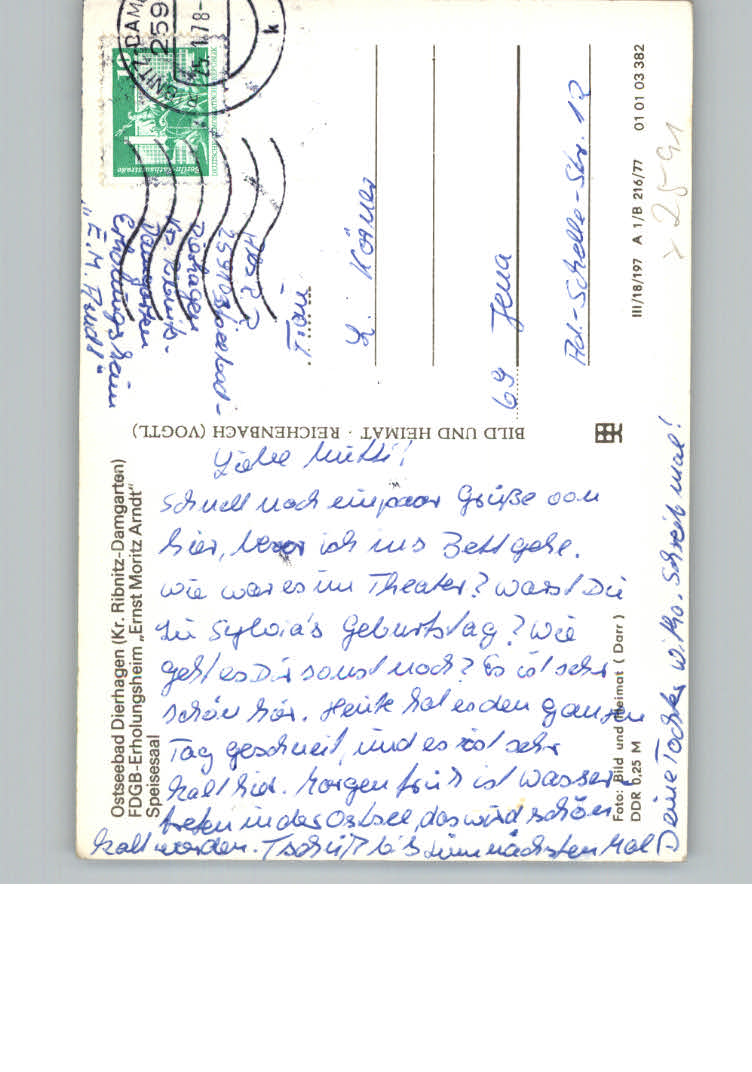 Ostseebad Dierhagen (Kr. Ribnitz-Damgarten)
FDGB-Erholungsheim „Ernst Moritz Arndt“
Speisesaal
Liebe Mutti!
Schnell noch ein paar Grüße von
hier, bevor ich ins Bett gehe.
Wie war es im Theater? Warst Du
zu Sylvia's Geburtstag? Wie
geht es Dir sonst noch? Es ist sehr
schön hier. Heute hat es den ganzen
Tag geschneit, und es ist sehr
kalt hier. Morgen früh ist Wasser-
treten in der Ostsee, das wird schön
kalt werden. Tschüß bis zum nächsten Mal
Deine Tochter Schreib mal!
Foto: Bild und Heimat (Darr)
DDR 0,25 M
BILD UND HEIMAT · REICHENBACH (VOGTL)
2591 Ostseebad-
Dierhagen
Kr. Ribnitz-
Damgarten
Erholungsheim
„E. M. Arndt“
DEUTSCHE DEMOKRATISCHE REPUBLIK
10
Berlin-Rathausstraße
RIBNITZ-DAM
259
25.-1.78-
k
L. Körner
69 Jena
Ad.-Schelle-Str. 12
III/18/197 A 1/B 216/77 01 01 03 382
2591